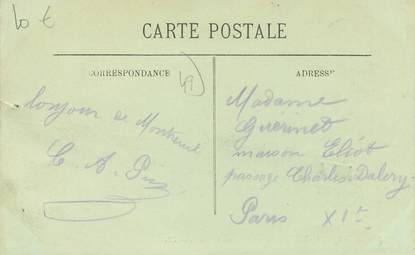 10 €
CARTE POSTALE
CORRESPONDANCE
49
ADRESSE
bonjour de Montreuil
C. A.
Madame
Guérinet
maison Eliot
passage Charles Dalery
Paris XIe